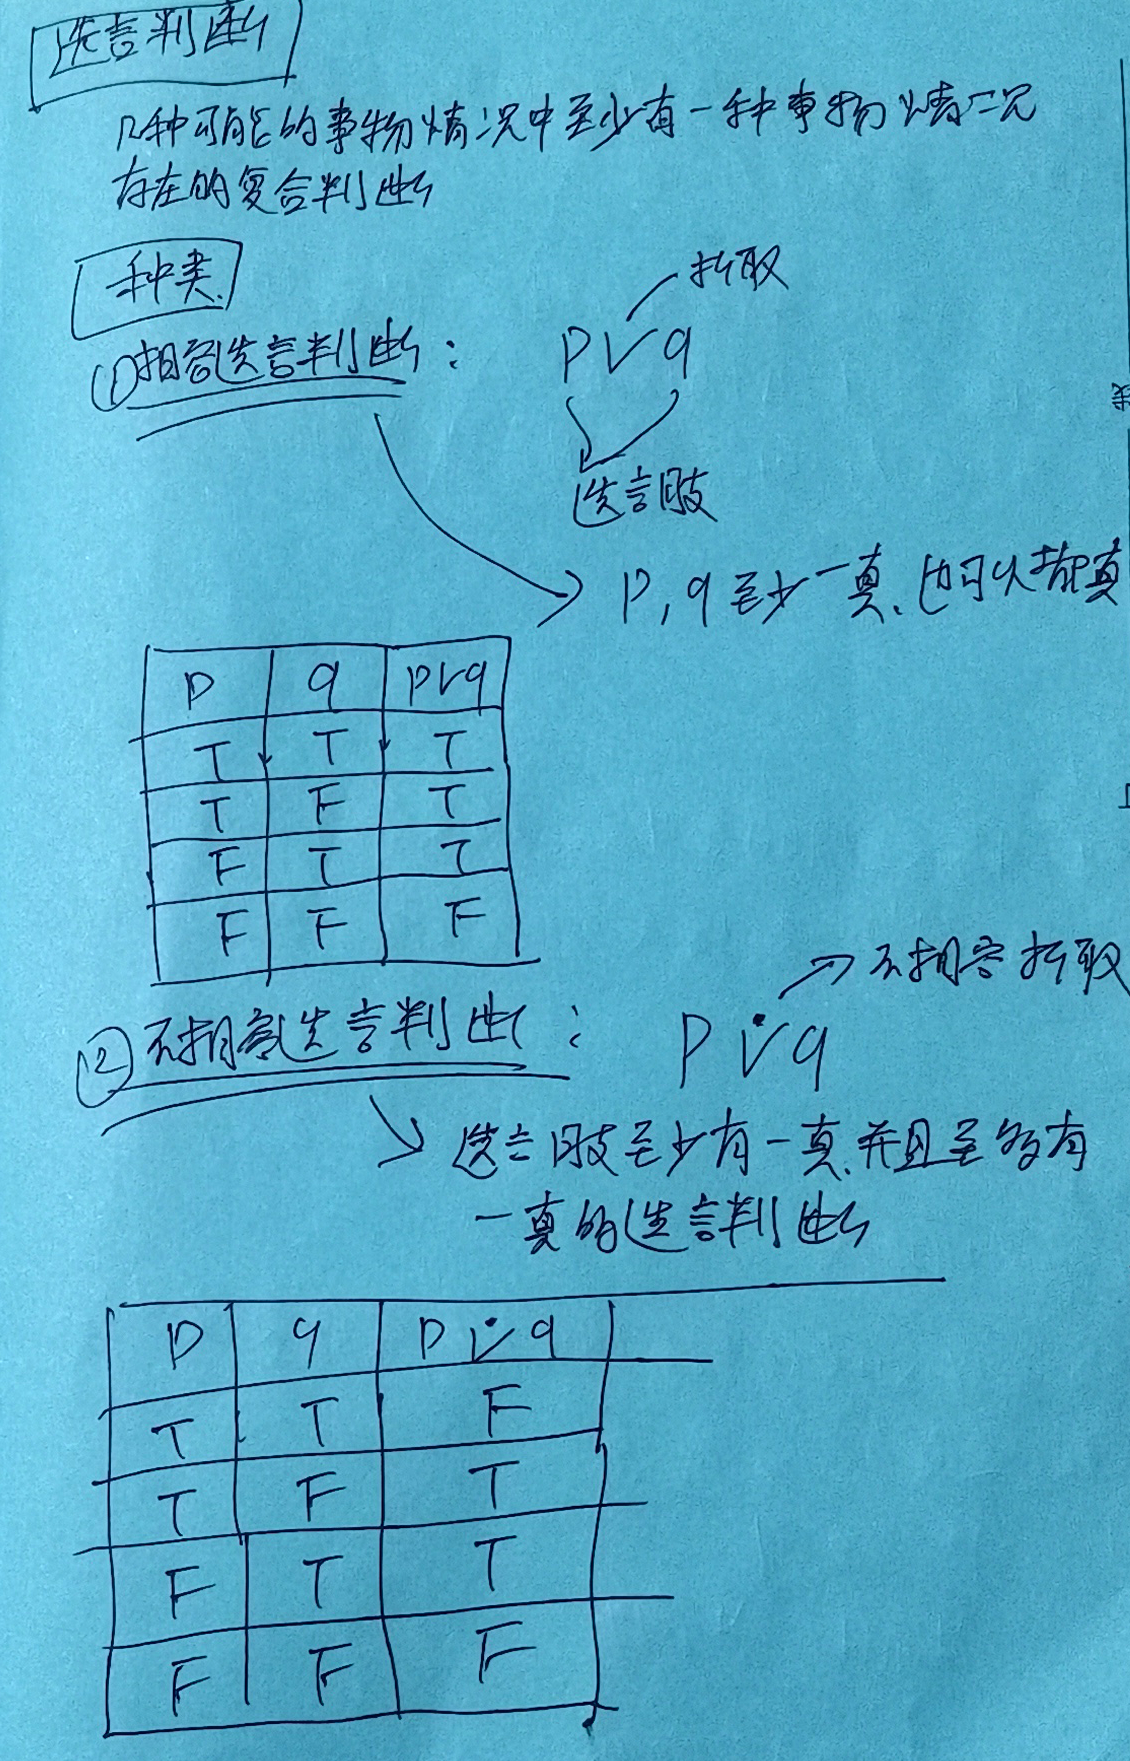 选言判断
几种可能的事物情况中至少有一种事物情况
存在的复合判断
种类
析取
①相容选言判断： p∨q
选言肢
p,q至少一真、也可以都真
p q p∨q
T T T
T F T
F T T
F F F
不相容析取
②不相容选言判断： p∨̇q
选言肢至少有一真、并且至多有
一真的选言判断
p q p∨̇q
T T F
T F T
F T T
F F F